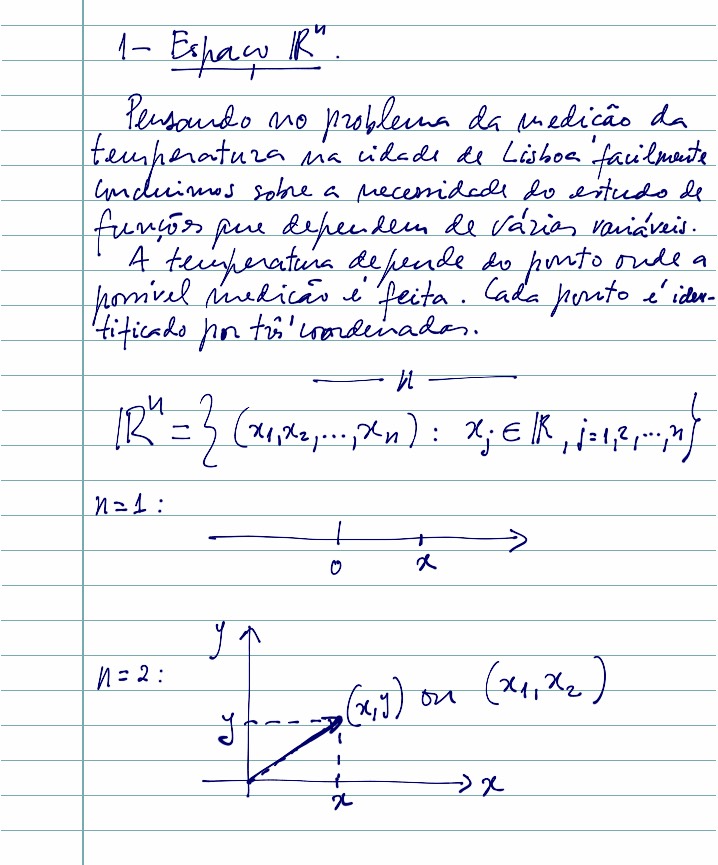 1- Espaço ℝⁿ.
Pensando no problema da medição da
temperatura na cidade de Lisboa facilmente
concluimos sobre a necessidade do estudo de
funções que dependem de várias variáveis.
A temperatura depende do ponto onde a
possível medição é feita. Cada ponto é iden-
tificado por três coordenadas.
ℝⁿ = { (x₁, x₂, ..., xₙ) : xⱼ ∈ ℝ, j=1,2,...,n }
n=1 :
0 x
y
n=2 :
(x,y) ou (x₁, x₂)
y
x
x